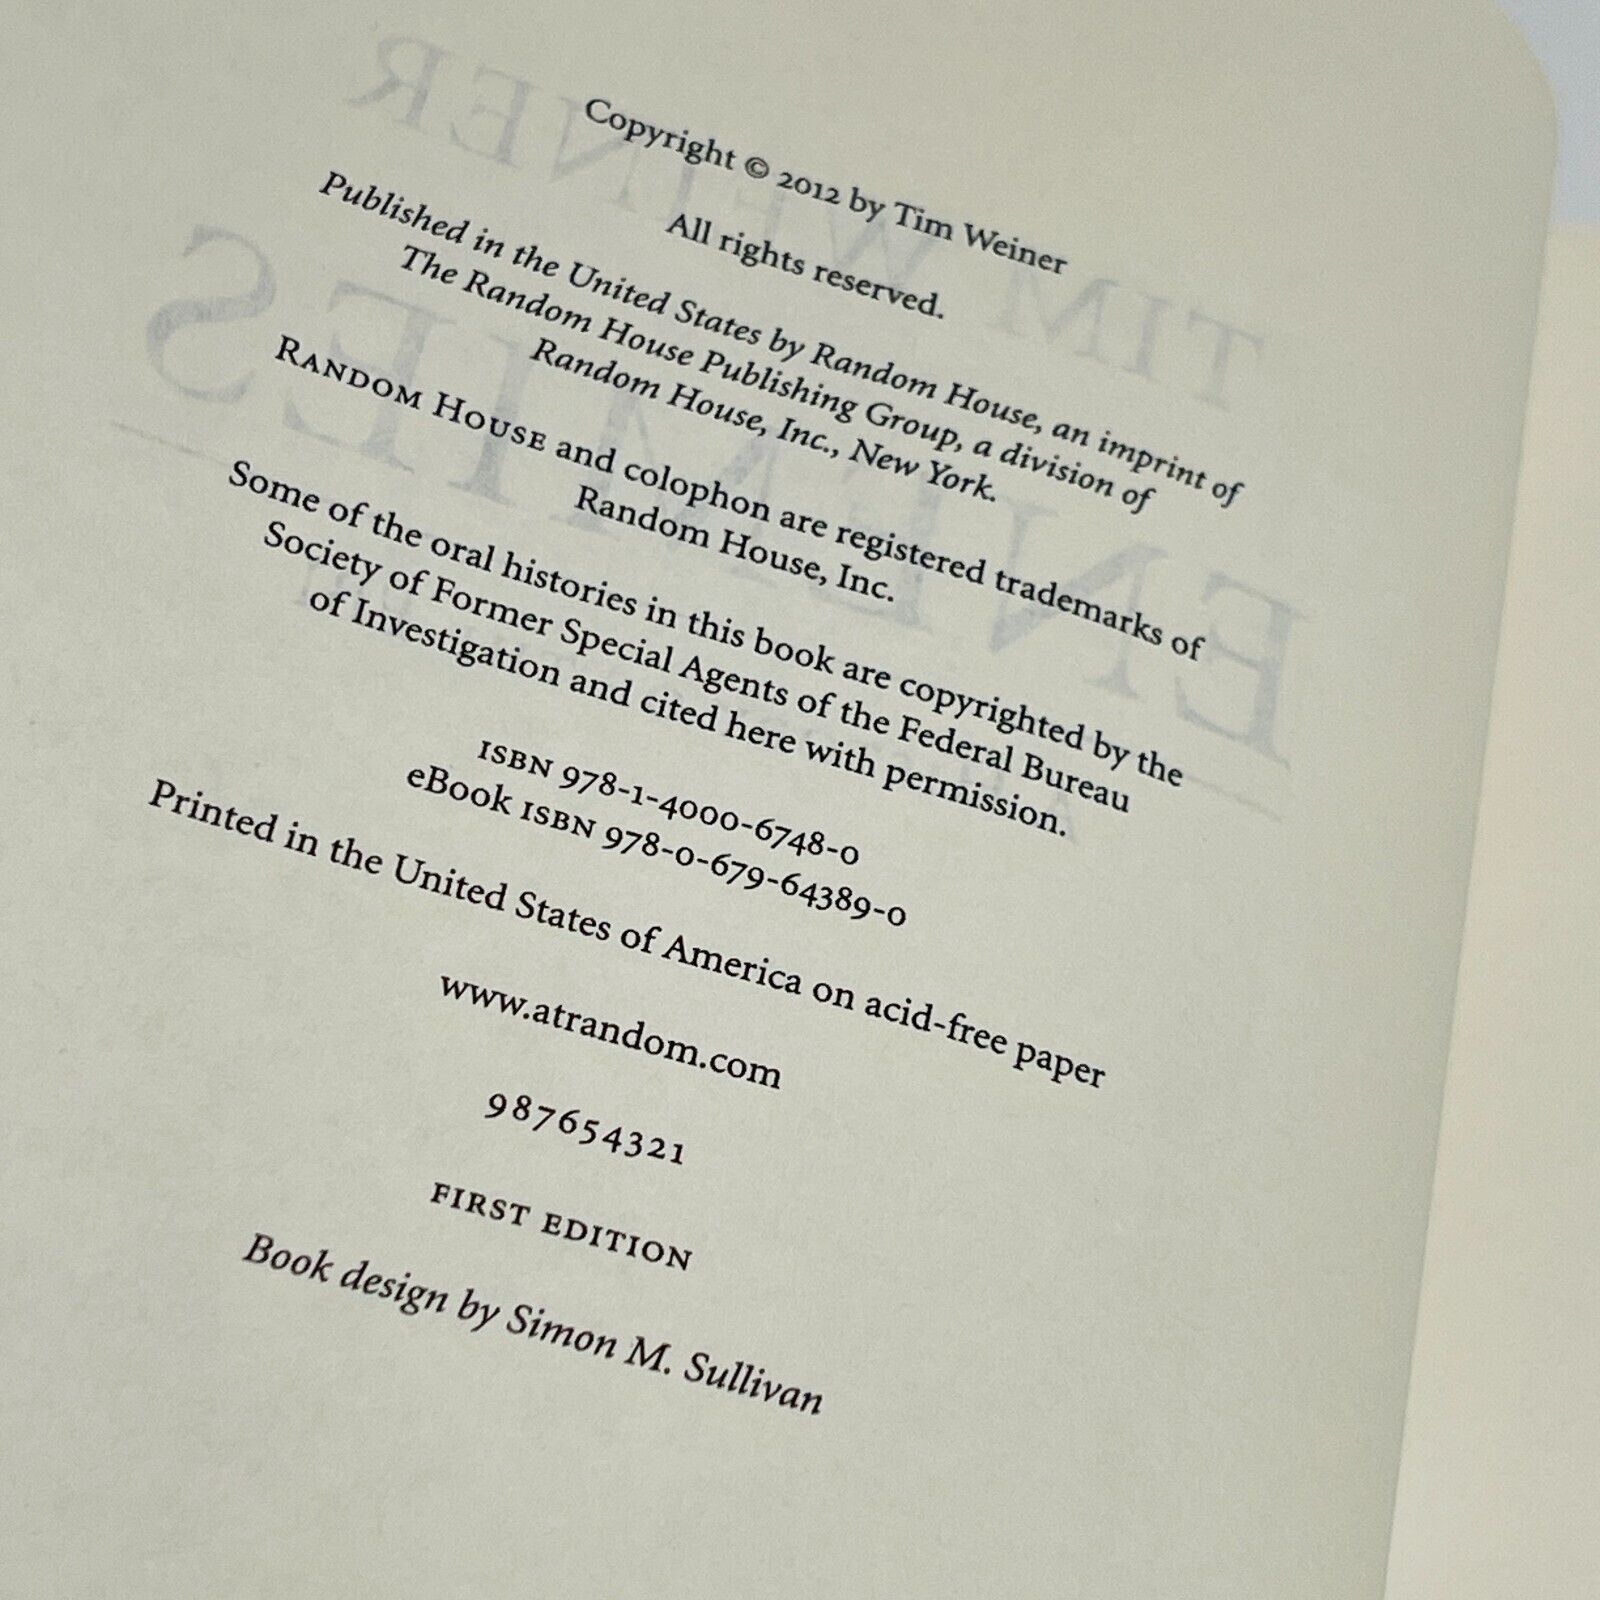 Copyright © 2012 by Tim Weiner
All rights reserved.
Published in the United States by Random House, an imprint of
The Random House Publishing Group, a division of
Random House, Inc., New York.
RANDOM HOUSE and colophon are registered trademarks of
Random House, Inc.
Some of the oral histories in this book are copyrighted by the
Society of Former Special Agents of the Federal Bureau
of Investigation and cited here with permission.
ISBN 978-1-4000-6748-0
eBook ISBN 978-0-679-64389-0
Printed in the United States of America on acid-free paper
www.atrandom.com
987654321
FIRST EDITION
Book design by Simon M. Sullivan
TIM WEINER
ENEMIES